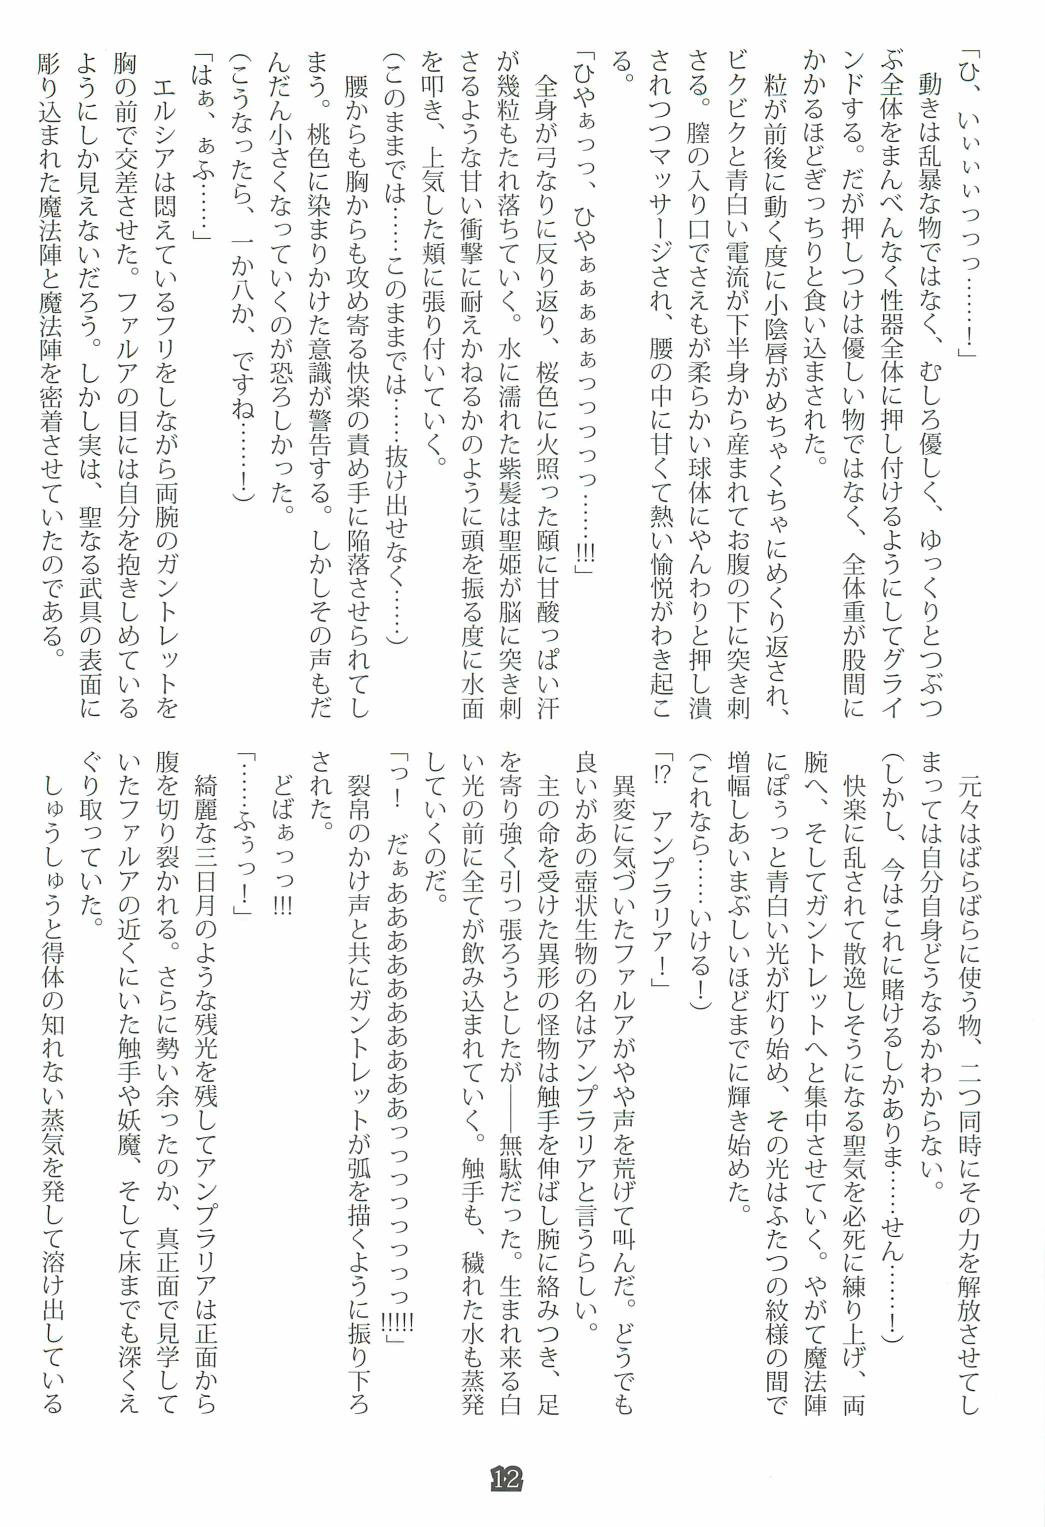 「ひ、いぃぃぃっっっ……！」
　動きは乱暴な物ではなく、むしろ優しく、ゆっくりとつぶつ
ぶ全体をまんべんなく性器全体に押し付けるようにしてグライ
ンドする。だが押しつけは優しい物ではなく、全体重が股間に
かかるほどぎっちりと食い込まされた。
　粒が前後に動く度に小陰唇がめちゃくちゃにめくり返され、
ビクビクと青白い電流が下半身から産まれてお腹の下に突き刺
さる。膣の入り口でさえもが柔らかい球体にやんわりと押し潰
されつつマッサージされ、腰の中に甘くて熱い愉悦がわき起こ
る。
「ひやぁっっ、ひやぁぁぁぁぁっっっっっ……!!!」
　全身が弓なりに反り返り、桜色に火照った頤に甘酸っぱい汗
が幾粒もたれ落ちていく。水に濡れた紫髪は聖姫が脳に突き刺
さるような甘い衝撃に耐えかねるかのように頭を振る度に水面
を叩き、上気した頬に張り付いていく。
(このままでは……このままでは……抜け出せなく……)
　腰からも胸からも攻め寄る快楽の責め手に陥落させられてし
まう。桃色に染まりかけた意識が警告する。しかしその声もだ
んだん小さくなっていくのが恐ろしかった。
(こうなったら、一か八か、ですね……！)
「はぁ、ぁふ……」
　エルシアは悶えているフリをしながら両腕のガントレットを
胸の前で交差させた。ファルアの目には自分を抱きしめている
ようにしか見えないだろう。しかし実は、聖なる武具の表面に
彫り込まれた魔法陣と魔法陣を密着させていたのである。
　元々はばらばらに使う物、二つ同時にその力を解放させてし
まっては自分自身どうなるかわからない。
(しかし、今はこれに賭けるしかありま……せん……！)
　快楽に乱されて散逸しそうになる聖気を必死に練り上げ、両
腕へ、そしてガントレットへと集中させていく。やがて魔法陣
にぽぅっと青白い光が灯り始め、その光はふたつの紋様の間で
増幅しあいまぶしいほどまでに輝き始めた。
(これなら……いける！)
「!?　アンプラリア！」
　異変に気づいたファルアがやや声を荒げて叫んだ。どうでも
良いがあの壺状生物の名はアンプラリアと言うらしい。
　主の命を受けた異形の怪物は触手を伸ばし腕に絡みつき、足
を寄り強く引っ張ろうとしたが――無駄だった。生まれ来る白
い光の前に全てが飲み込まれていく。触手も、穢れた水も蒸発
していくのだ。
「っ！　だぁああああああああああっっっっっっっ!!!!!」
　裂帛のかけ声と共にガントレットが弧を描くように振り下ろ
された。
　どばぁっっ!!!
「……ふぅっ！」
　綺麗な三日月のような残光を残してアンプラリアは正面から
腹を切り裂かれる。さらに勢い余ったのか、真正面で見学して
いたファルアの近くにいた触手や妖魔、そして床までも深くえ
ぐり取っていた。
　しゅうしゅうと得体の知れない蒸気を発して溶け出している
12